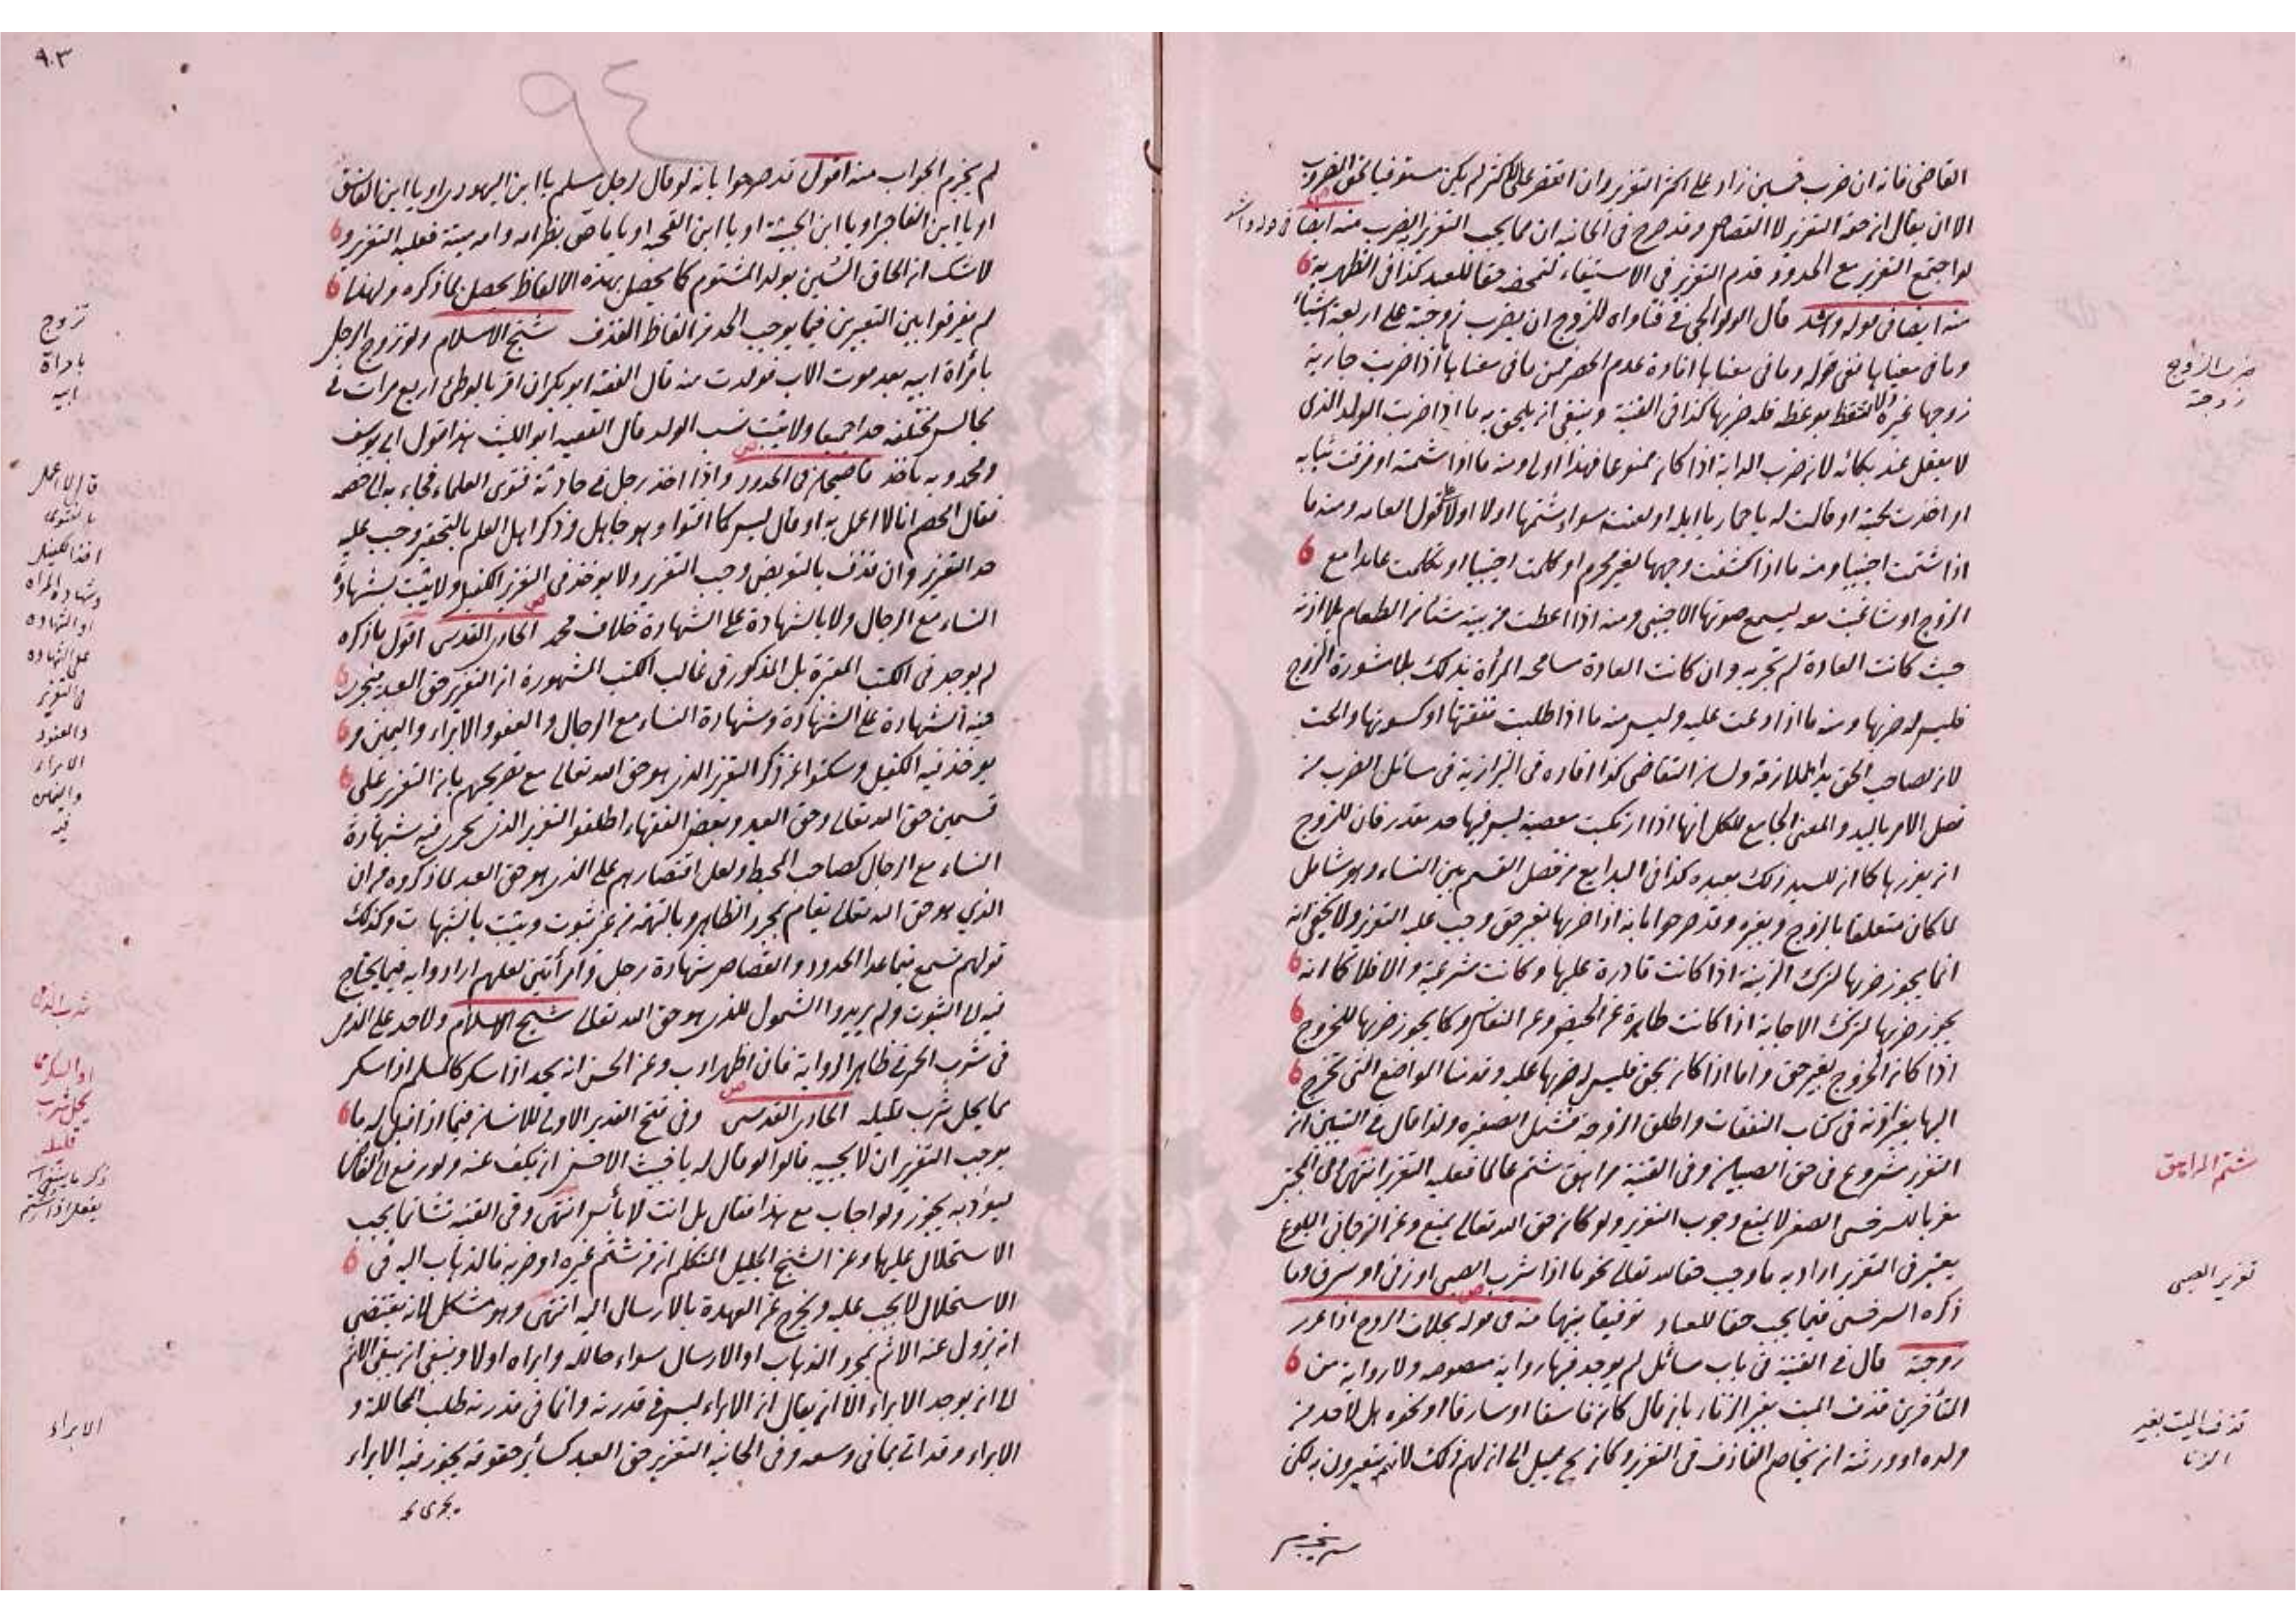 القاضى فانه ان ضرب خمسين زاد على اكثر التعزير وان اقتصر على الاكثر لم يكن مستوفيا لحق المضروب
الا ان يقال ان حقه التعزير لا القصاص وقد صرح فى الخانيه ان مما يجب التعزير الضرب منه ايضا فى قوله واشد
لو اجتمع التعزير مع الحدود قدم التعزير فى الاستيفاء لتمحضه حقا للعبد كذا فى الظهيرية
منه ايضا فى قوله واشد قال الولوالجى فى فتاواه للزوج ان يضرب زوجته على اربعة اشياء
وما فى معناها ففى قوله وما فى معناها افادة عدم الحصر فمن ما فى معناها اذا ضربت جارية
زوجها غيرة ولا تتعظ بوعظه فله ضربها كذا فى القنية وينبغى ان يلحق به ما اذا ضربت الولد الذى
لا يعقل عند بكائه لان ضرب الدابة اذا كان ممنوعا فهذا اولى ومنه ما اذا شتمته او مزقت ثيابه
او اخذت لحيته او قالت له يا حمار يا ابله او لعنته سواء شتمها اولا او لا على قول العامه ومنه ما
اذا شتمت اجنبيا ومنه ما اذا كشفت وجهها لغير محرم او كلمت اجنبيا او تكلمت عامدا مع
الزوج او شاغبت معه ليسمع صوتها الاجنبى ومنه اذا اعطت من بيته شيئا من الطعام بلا اذنه
حيث كانت العادة لم تجر به وان كانت العادة مسامحة المرأة بذلك بلا مشورة الزوج
فليس له ضربها ومنه ما اذا ادعت عليه وليس منه ما اذا طلبت نفقتها او كسوتها والحت
لان لصاحب الحق يد الملازمة ولسان التقاضى كذا افاده فى البزازية فى مسائل الضرب من
فصل الامر باليد والمعنى الجامع للكل انها اذا ارتكبت معصية ليس فيها حد مقدر فان للزوج
ان يعزرها كما ان للسيد ذلك بعبده كذا فى البدايع من فصل القسم بين النساء وهو شامل
لما كان متعلقا بالزوج وبغيره وقد صرحوا بانه اذا ضربها بغير حق وجب عليه التعزير ولا يخفى انه
انما يجوز ضربها لترك الزينة اذا كانت قادرة عليها وكانت شرعية والا فلا كما انه
يجوز ضربها لترك الاجابة اذا كانت طاهرة عن الحيض وعن النفاس وكما يجوز ضربها للخروج
اذا كان الخروج بغير حق واما اذا كان بحق فليس له ضربها عليه وقدمنا المواضع التى تخرج
اليها بغير اذنه فى كتاب النفقات واطلق الزوجه فشمل الصغيره ولذا قال فى التبيين ان
التعزير مشروع فى حق الصبيان وفى القنية مراهق شتم عالما فعليه التعزير انتهى وفى المجتبى
معزيا للسرخسى الصغر لا يمنع وجوب التعزير ولو كان حق الله تعالى يمنع وعن الترجمانى البلوغ
يعتبر فى التعزير اراد به ما وجب حقا لله تعالى نحو ما اذا شرب الصبى او زنى او سرق وما
ذكره السرخسى فيما يجب حقا للعباد توفيقا بينهما منه فى قوله بخلاف الزوج اذا عزر
زوجته قال فى القنية فى باب مسائل لم يوجد فيها رواية منصوصه ولا رواية من
المتأخرين قذف الميت بغير الزنا بان قال كان فاسقا او سارقا او نحوه هل لاحد من
ولده او ورثته ان يخاصم القاذف فى التعزير وكان بح يميل الى ان لهم ذلك لانهم يتعيرون به لكن
ضرب الزوج
زوجته
شتم المراهق
تعزير الصبى
قذف الميت بغير
الزنا
٩٣
٩٤
لم يجزم الجواب منه اقول قد صرحوا بانه لو قال لرجل مسلم يا ابن اليهودى او يا ابن الفاسق
او يا ابن الفاجر او يا ابن الخبيثة او يا ابن القحبه او يا ماص بظر امه وامه ميتة فعليه التعزير و
لا شك ان الحاق الشين بولد المشتوم كما يحصل بهذه الالفاظ يحصل بما ذكره ولهذا
لم يفرقوا بين التعبيرين فيما يوجب الحد من الفاظ القذف شيخ الاسلام ولو تزوج الرجل
بامرأة ابيه بعد موت الاب فولدت منه قال الفقيه ابو بكر ان اقر بالوطئ اربع مرات فى
مجالس مختلفه حدا جميعا ولا يثبت نسب الولد قال الفقيه ابو الليث هذا قول ابى يوسف
ومحمد وبه نأخذ قاضيخان فى الحدود واذا اخذ رجل فى حادثة فتوى العلماء فجاء به الى خصمه
فقال الخصم انا لا اعمل به او قال ليس كما افتوا وهو جاهل وذكر اهل العلم بالتحقير وجب عليه
حد التعزير وان قذف بالتعريض وجب التعزير ولا يؤخذ فى التعزير الكفيل ولا يثبت بشهادة
النساء مع الرجال ولا بالشهادة على الشهادة خلاف محمد الحاوى القدسى اقول ما ذكره
لم يوجد فى الكتب المعتبرة بل المذكور فى غالب الكتب المشهورة ان التعزير حق العبد فيجرى
فيه الشهادة على الشهادة وشهادة النساء مع الرجال والعفو والابراء واليمين و
يؤخذ فيه الكفيل وسكتوا عن ذكر التعزير الذى هو حق الله تعالى مع تصريحهم بان التعزير على
قسمين حق الله تعالى وحق العبد وبعض الفقهاء اطلقوا التعزير الذى يجرى فيه شهادة
النساء مع الرجال كصاحب المحيط ولعل اقتصارهم على الذى هو حق العبد لما ذكروه من ان
الذي هو حق الله تعالى يقام بمجرد الظاهر وبالتهمه من غير ثبوت ويثبت بالشبهات وكذلك
قولهم تسمع فيما عدا الحدود والقصاص شهادة رجل وامرأتين لعلهم ارادوا به فيما يحتاج
فيه الى الثبوت ولم يريدوا الشمول للذى هو حق الله تعالى شيخ الاسلام ولا حد على الذمى
فى شرب الخمر فى ظاهر الرواية فان اظهر ادب وعن الحسن انه يحد اذا سكر كالمسلم اذا سكر
مما يحل شرب قليله الحاوى القدسى وفى فتح القدير الاولى للانسان فيما اذا قيل له ما
يوجب التعزير ان لا يجيبه قالوا لو قال له يا خبيث الاحسن ان يكف عنه ولو رفع الى القاضى
ليؤدبه يجوز ولو اجاب مع هذا فقال بل انت لا بأس انتهى وفى القنيه تشاتما يجب
الاستحلال عليهما وعن الشيخ الجليل المتكلم ان من شتم غيره او ضربه فالذهاب اليه فى
الاستحلال لا يجب عليه ويخرج عن العهدة بالارسال اليه انتهى وهو مشكل لانه يقتضى
انه يزول عنه الاثم بمجرد الذهاب او الارسال سواء حالله وابراه اولا وينبغى ان يبقى الاثم
الى ان يوجد الابراء الا ان يقال ان الابراء ليس فى قدرته وانما فى قدرته طلب المحاللة و
الابراء وقد اتى بما فى وسعه وفى الخانيه التعزير حق العبد كسائر حقوقه يجوز فيه الابراء
تزوج
بامراة
ابيه
قال لا اعمل
بالفتوى
اخذ الكفيل
وشهادة المراه
او الشهاده
على الشهاده
فى التعزير
والعفو
الابراء
واليمين
فيه
شرب الذمى
او السكر مما
يحل شرب
قليله
الابراء